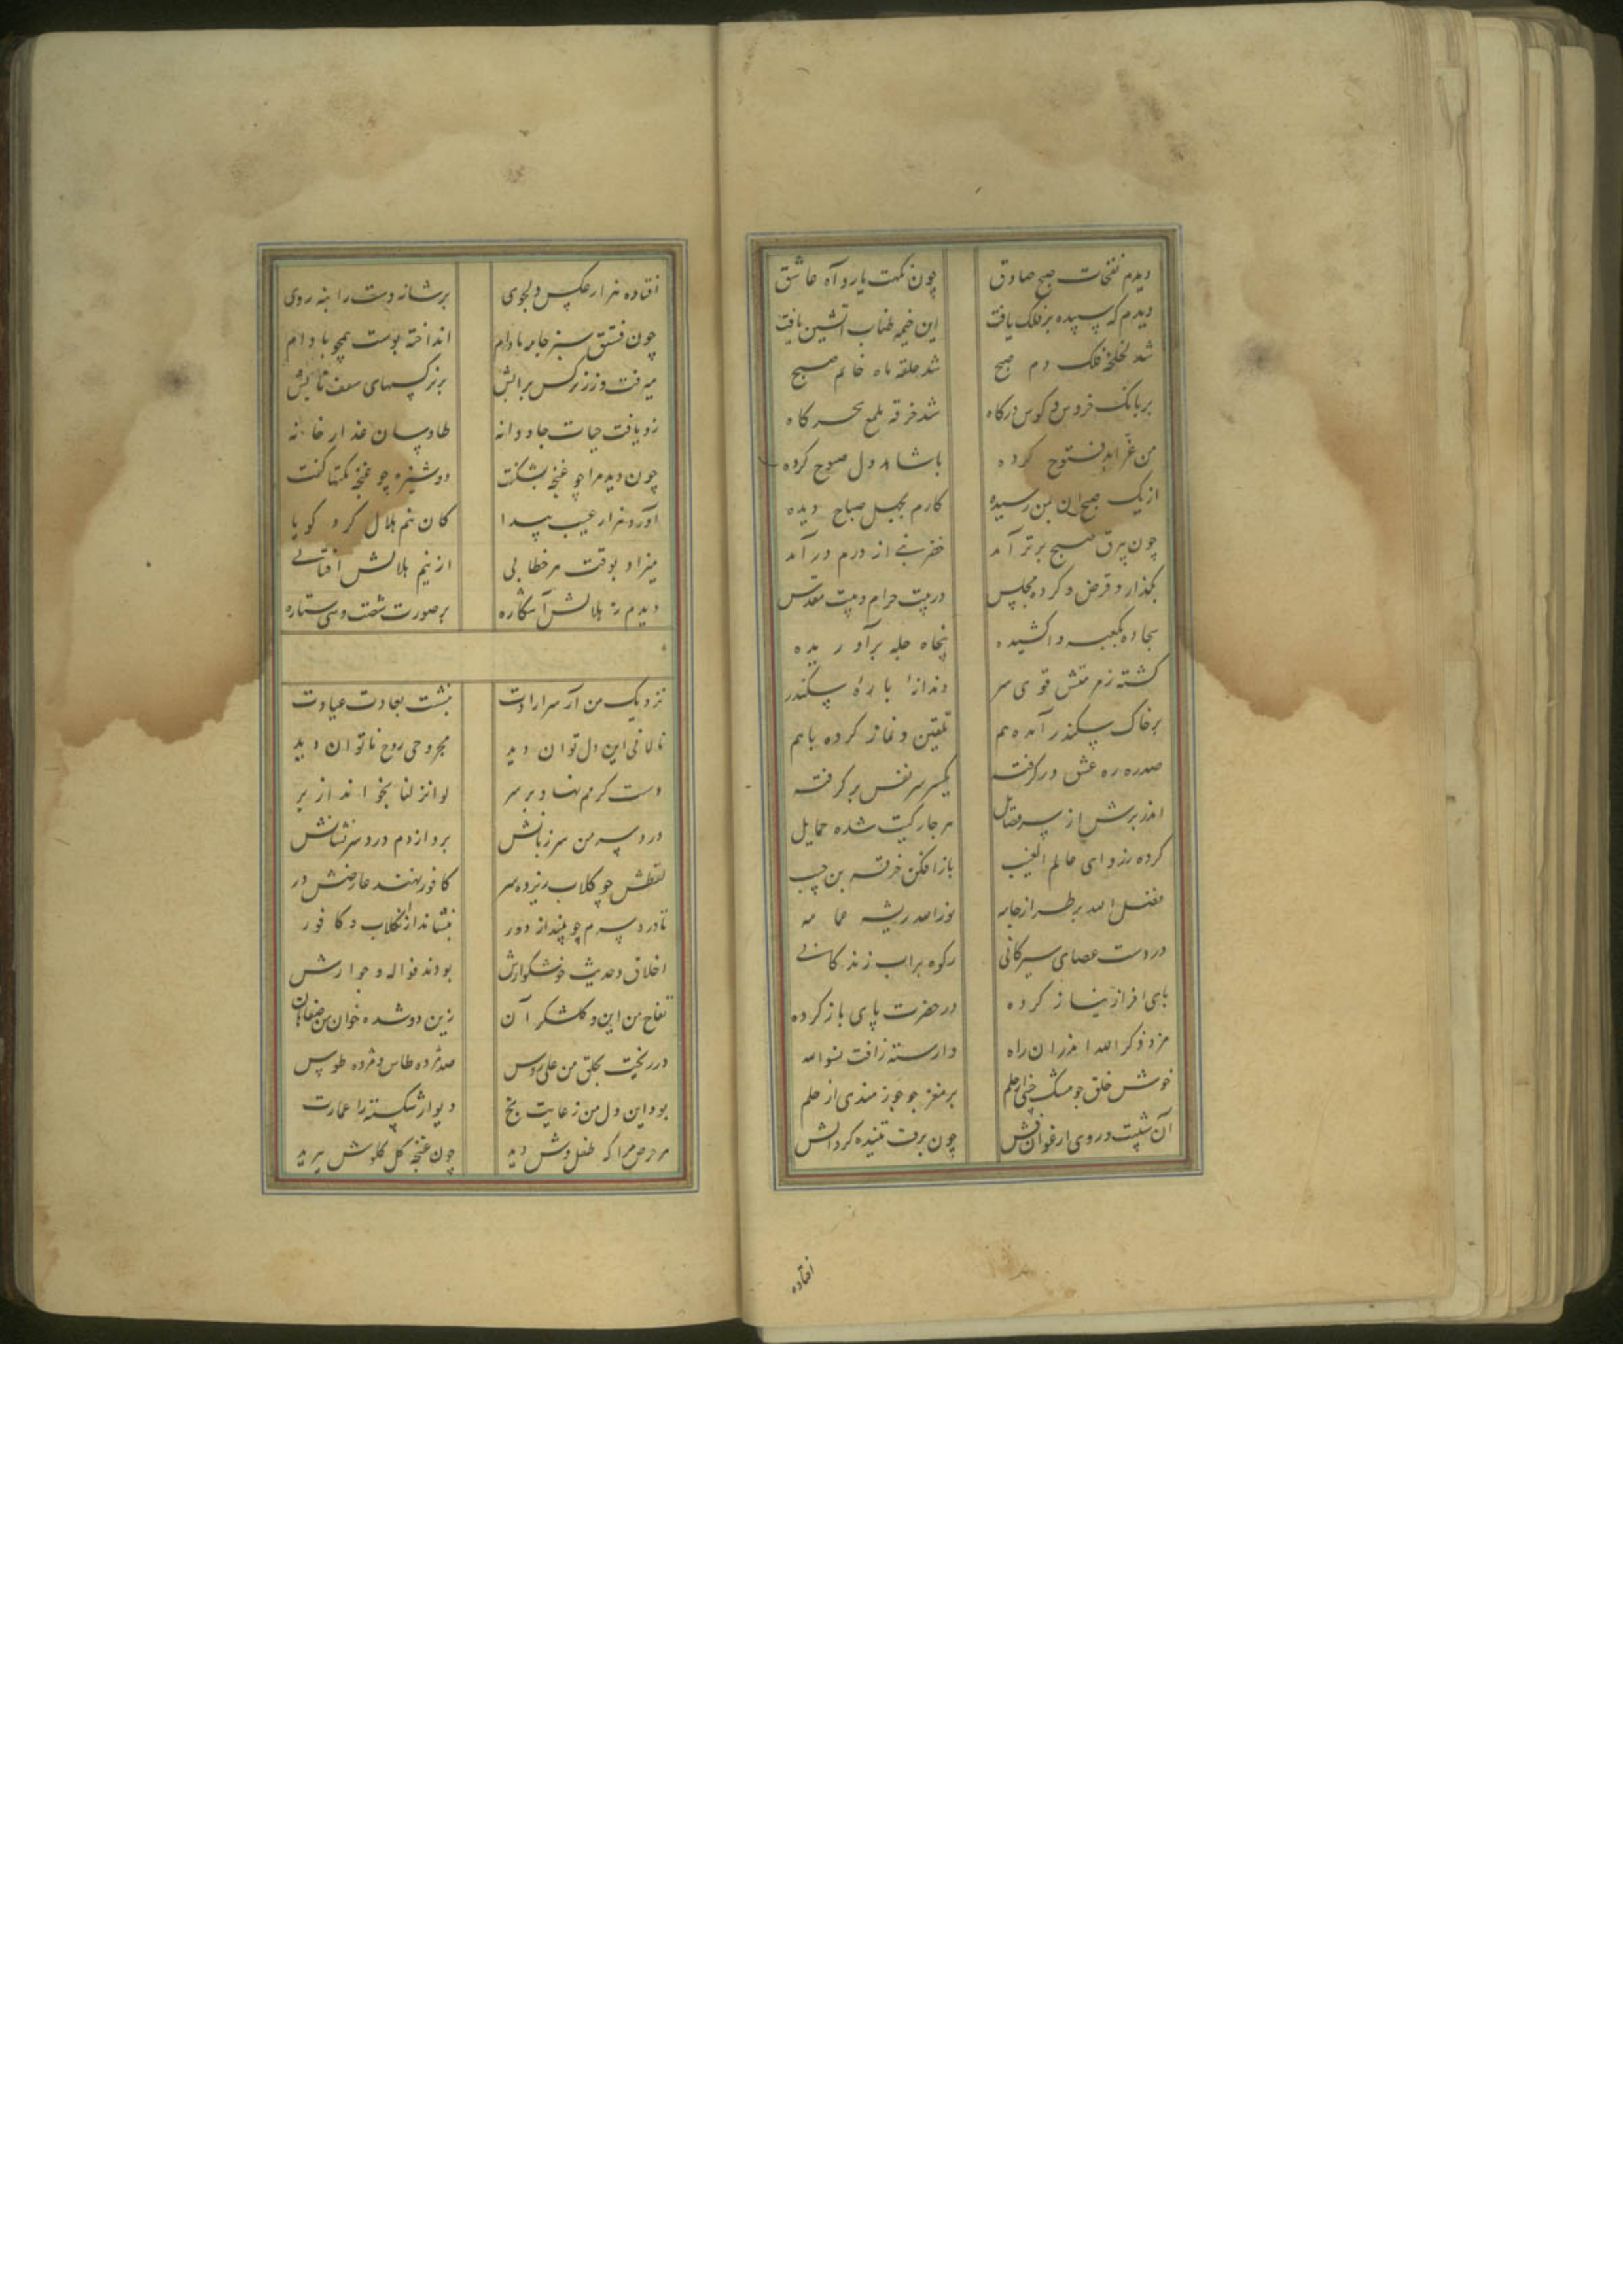 دیدم نفحات صبح صادق چون نکهت یار و آه عاشق
دیدم که سپیده بر فلک یافت این خیمه طناب آتشین یافت
شد لخلخه فلک دم صبح شد حلقه ماه خاتم صبح
بر بانک خروس و کوس درکاه شد خرقه ملمع سحرکاه
من غر آبد فتوح کرده با شاهد دل صبوح کرده
از یک صبح ان بمن رسیده کارم بجمل صباح دیده
چون بیرق صبح برتر آمد خضر نبی از درم درآمد
بگذارد و فرض و کرده مجلس در بیت حرام و بیت مقدس
سجاده بکعبه واکشیده پنجاه چله برآوریده
کشته زم متش قوی سر دندانه با ره سکندر
بر خاک سکندر آمده هم تلقین و نماز کرده باهم
صدره ره عشق درکرفته یکسر سر نفس برکرفته
اندر برش از سر فضایل هر چار کتیب شده حمایل
کرده ز ردای عالم الغیب باز افکن خرقه بن جیب
فضل الله بر طراز جامه نورالله ریشه عمامه
در دست عصای سیرکانی رکوه بر آب زندکانی
پای افزاز نیاز کرده در حضرت پای باز کرده
مزد ذکر الله اندران راه وارسته ز آفت سوالله
خوش خلق چو مشک خیزی از حلم پر مغز چو جوز هندی از علم
آن شیبت و روی ارغوان فش چون برف تنیده کرد آتش
افتاده
افتاده هزار عکس دلجوی بر شانه دست را بنه روی
چون فستق سبز جامه مادام انداخته پوست همچو بادام
میرفت و زر نرکس برابش بر نرکسهای سقف تابش
زو یافت حیات جاودانه طاوسان عذار خانه
چون دید مرا چو غنچه بشکفت دوشیزه چو غنچه نکتها کفت
آورد هزار عیب پیدا کان نیم هلال کرد کویا
میزاد بوقت هر خطابی از نیم هلالش آفتابی
دیدم ز هلالش آشکاره بر صورت شصت و سی ستاره
نزدیک من آن سر ارادت بنشست بعادت عیادت
نالانی این دل توان دید مجروحی روح ناتوان دید
دست کرمم نهاد بر سر لو انزلنا بخواند از بر
درد سر من سر زبانش برد از دم درد سر نشانش
لفظش چو کلاب ریزد سر کافور نهند عارضش در
تا درد سرم چو بیند از دور بنشاند از کلاب و کافور
اخلاق و حدیث خوشکوارش بودند نواله و جوارش
تفاح من این و کلشکر آن زین دو شده خوان من صفاهان
در ریخت بحلق من علی روس صد مژده طاس و مژده طوس
بود این دل من ز غایت رنج دیوار شکسته را عمارت
هر حرص مرا که طفل وش دید چون غنچه کل کلوش برید